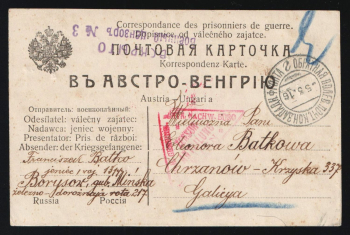 Correspondance des prisonniers de guerre.
Dopisnice od válečného zajatce.
№ 3
ПОЧТОВАЯ КАРТОЧКА
Korrespondenz Karte.
ВЪ АВСТРО-ВЕНГРІЮ
Austria - Ungaria
Отправитель: военноплѣнный:
Odesílatel: válečný zajatec:
Nadawca: jeniec wojenny:
Presentator: Pris de război:
Absender: der Kriegsgefangene:
Franciszek Batko
jeniec woj.
Borysow, gub. Mińska
rota 257
Russia Россія
Wielmożna Pani
Eleonora Batkowa
Chrzanów - Krzyska 337
Galicya